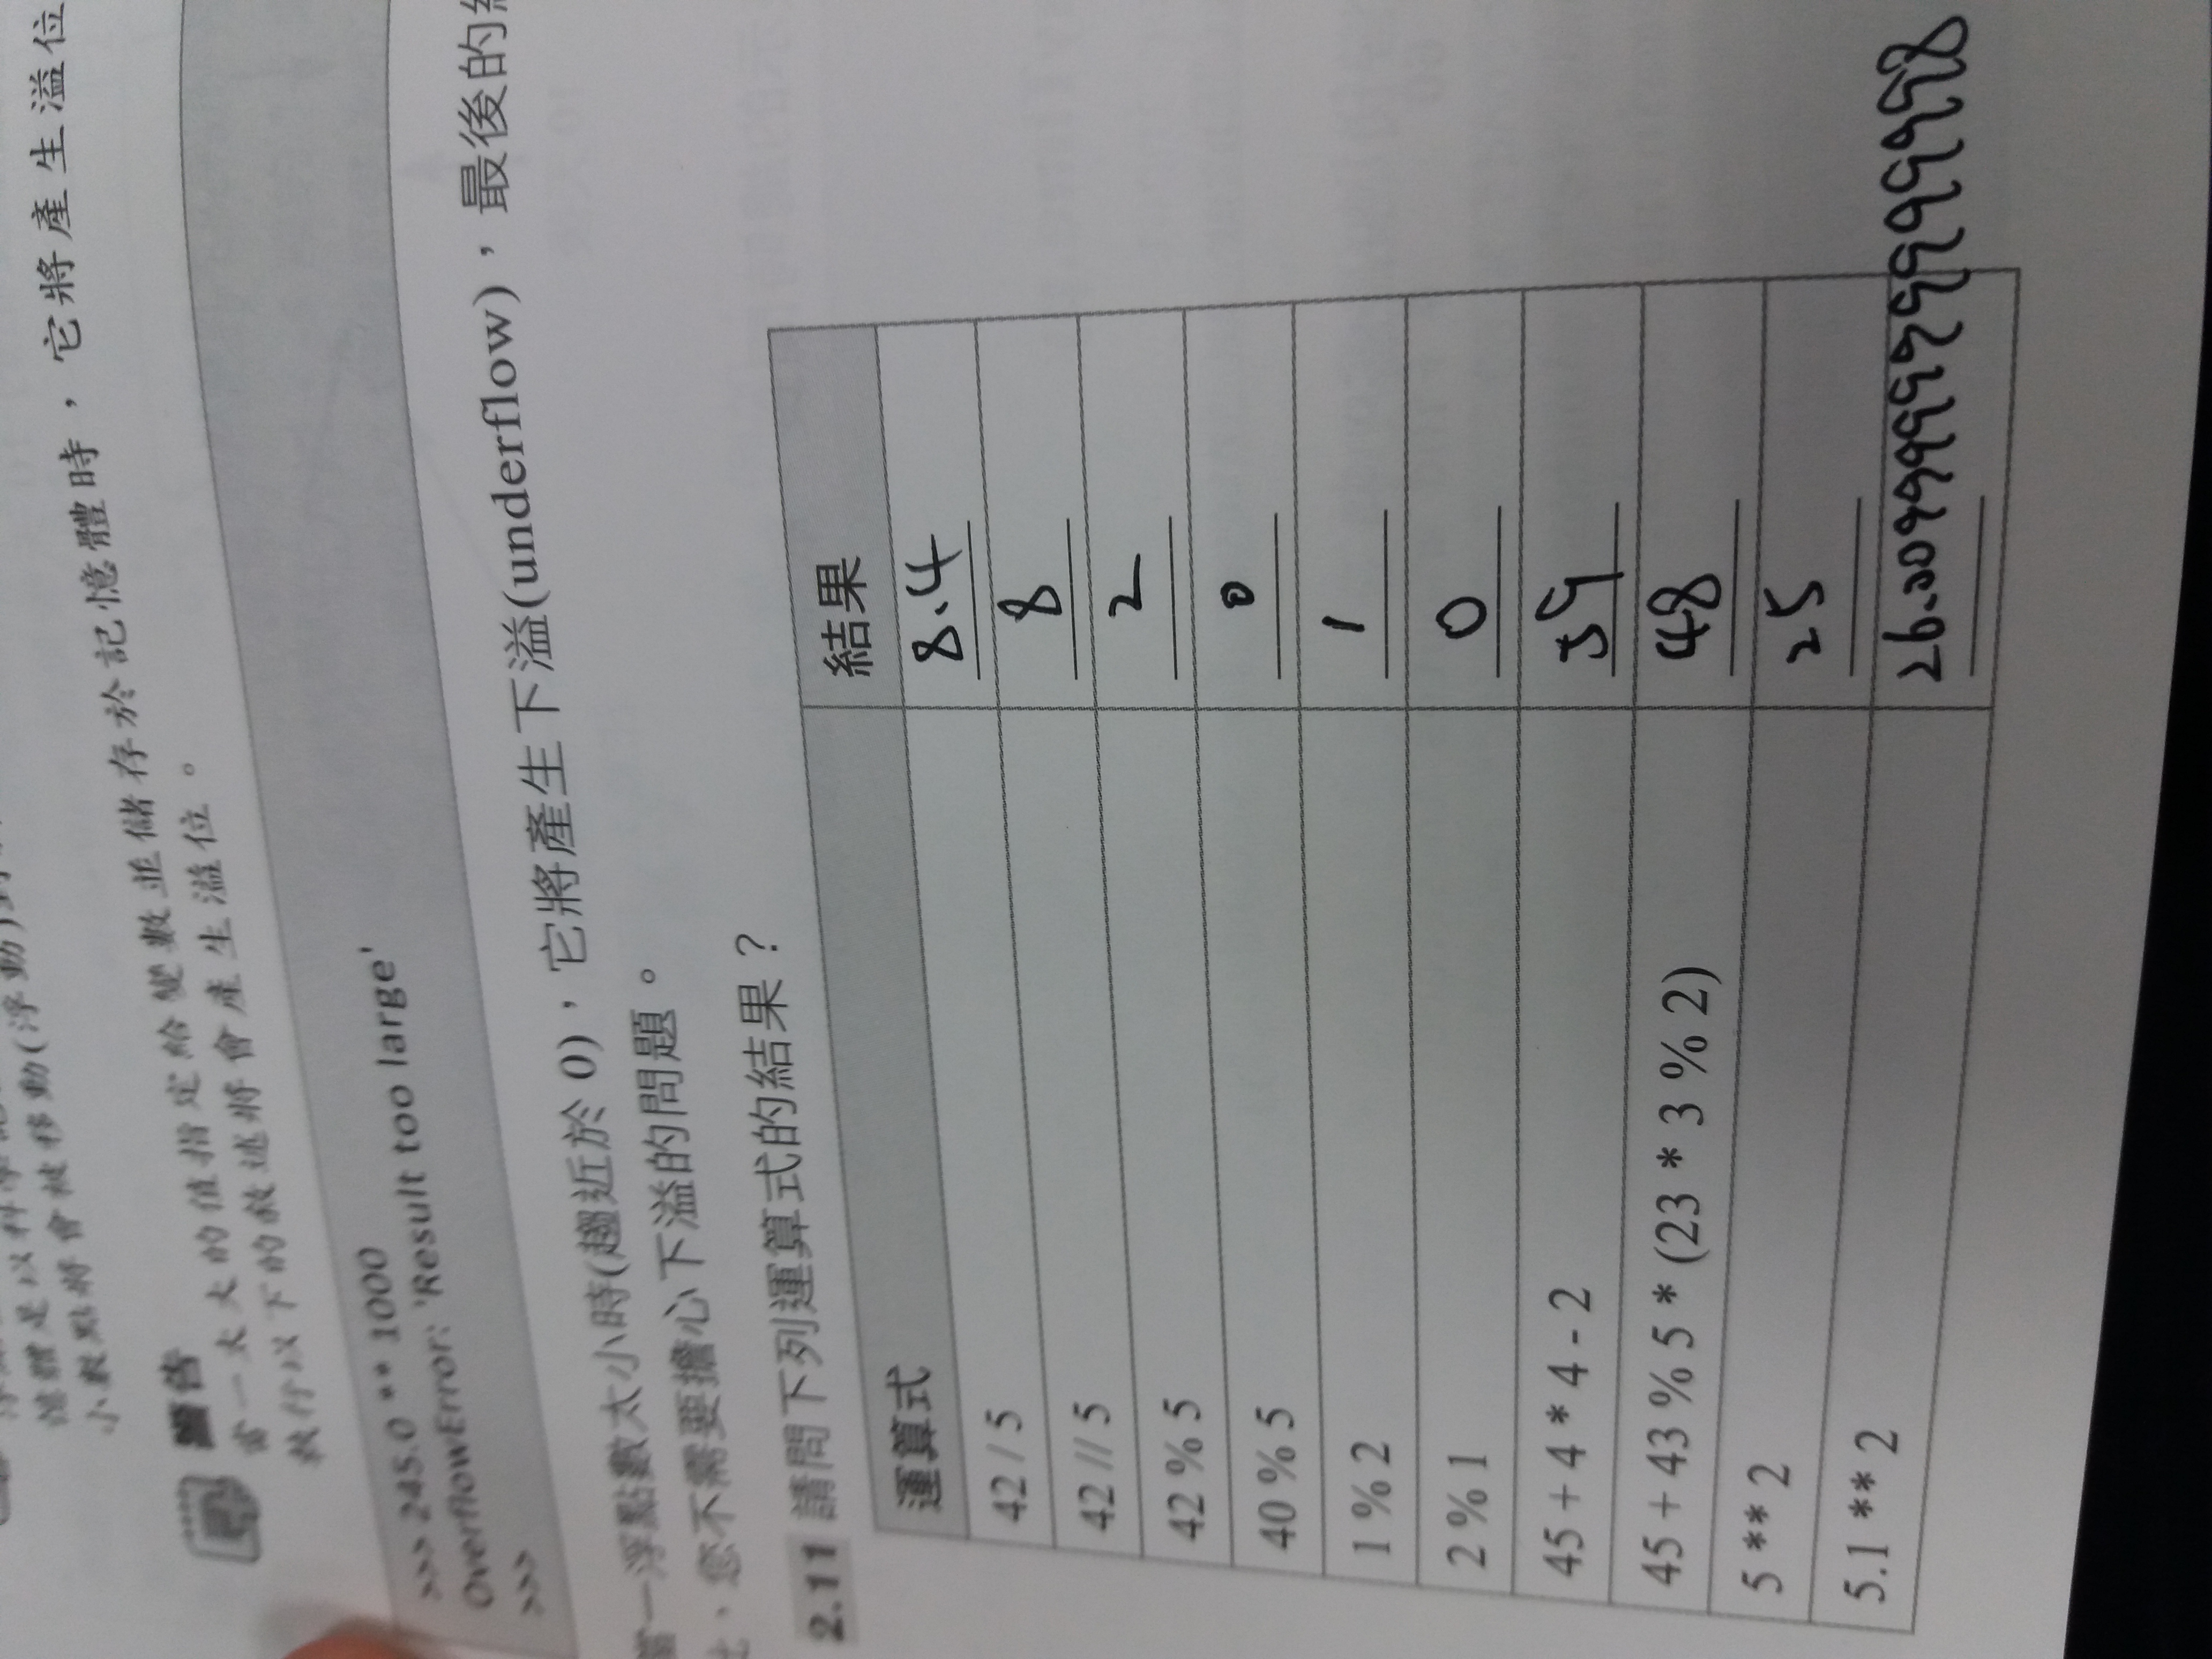 憶體是以科學記
小數點將會被移動(浮動)到
警告
當一太大的值指定給變數並儲存於記憶體時，它將產生溢位
執行以下的敘述將會產生溢位。
>>> 245.0 ** 1000
OverflowError: 'Result too large'
>>>
當一浮點數太小時(趨近於 0)，它將產生下溢(underflow)，最後的
，您不需要擔心下溢的問題。
2.11 請問下列運算式的結果？
運算式 結果
42 / 5 8.4
42 // 5 8
42 % 5 2
40 % 5 0
1 % 2 1
2 % 1 0
45 + 4 * 4 - 2 59
45 + 43 % 5 * (23 * 3 % 2) 48
5 ** 2 25
5.1 ** 2 26.009999999999998